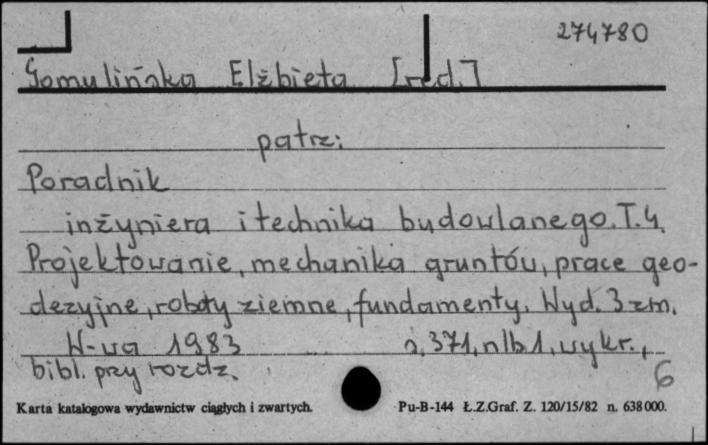 274780
Gomulińska Elżbieta [red.]
patrz:
Poradnik
inżyniera i technika budowlanego. T.4.
Projektowanie, mechanika gruntów, prace geo-
dezyjne, roboty ziemne, fundamenty. Wyd. 3 zm.
W-wa 1983 s. 371, nlb 1, wykr.,
bibl. przy rozdz. 6
Karta katalogowa wydawnictw ciągłych i zwartych. Pu-B-144 Ł.Z.Graf. Z. 120/15/82 n. 638000.